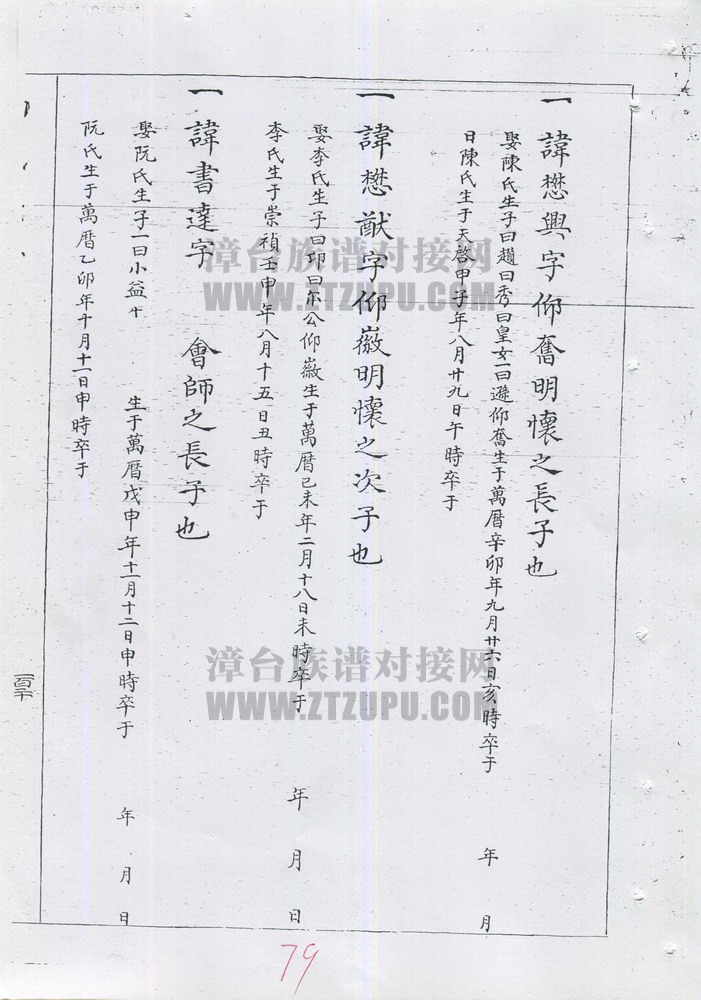 一 諱懋興字仰奮明懷之長子也
娶陳氏生子曰趙曰秀曰皇女一曰遜仰奮生于萬曆辛卯年九月廿六日亥時卒于 年 月
日陳氏生于天啓甲子年八月廿九日午時卒于
一 諱懋猷字仰嶶明懷之次子也
娶李氏生子曰卬曰尔公仰嶶生于萬曆己未年二月十八日未時卒于 年 月 日
李氏生于崇禎壬申年八月十五日丑時卒于
一 諱書達字 會師之長子也
娶阮氏生子一曰小益 生于萬曆戊申年十一月十二日申時卒于 年 月 日
阮氏生于萬曆乙卯年十月十一日申時卒于
79
漳台族谱对接网
WWW.ZTZUPU.COM
漳台族谱对接网
WWW.ZTZUPU.COM